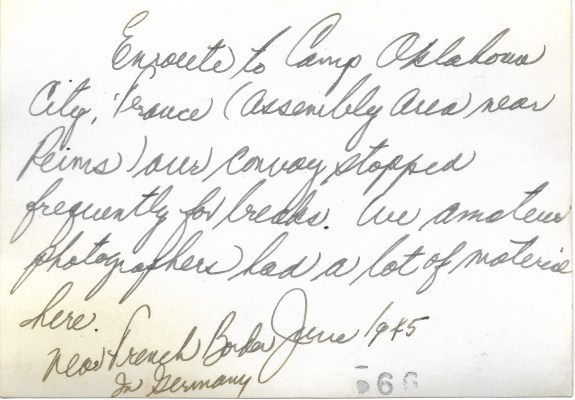 Enroute to Camp Oklahoma
City, France (Assembly Area near
Reims) our convoy stopped
frequently for breaks. We amateur
photographers had a lot of material
here.
near French Border June 1945
In Germany
566